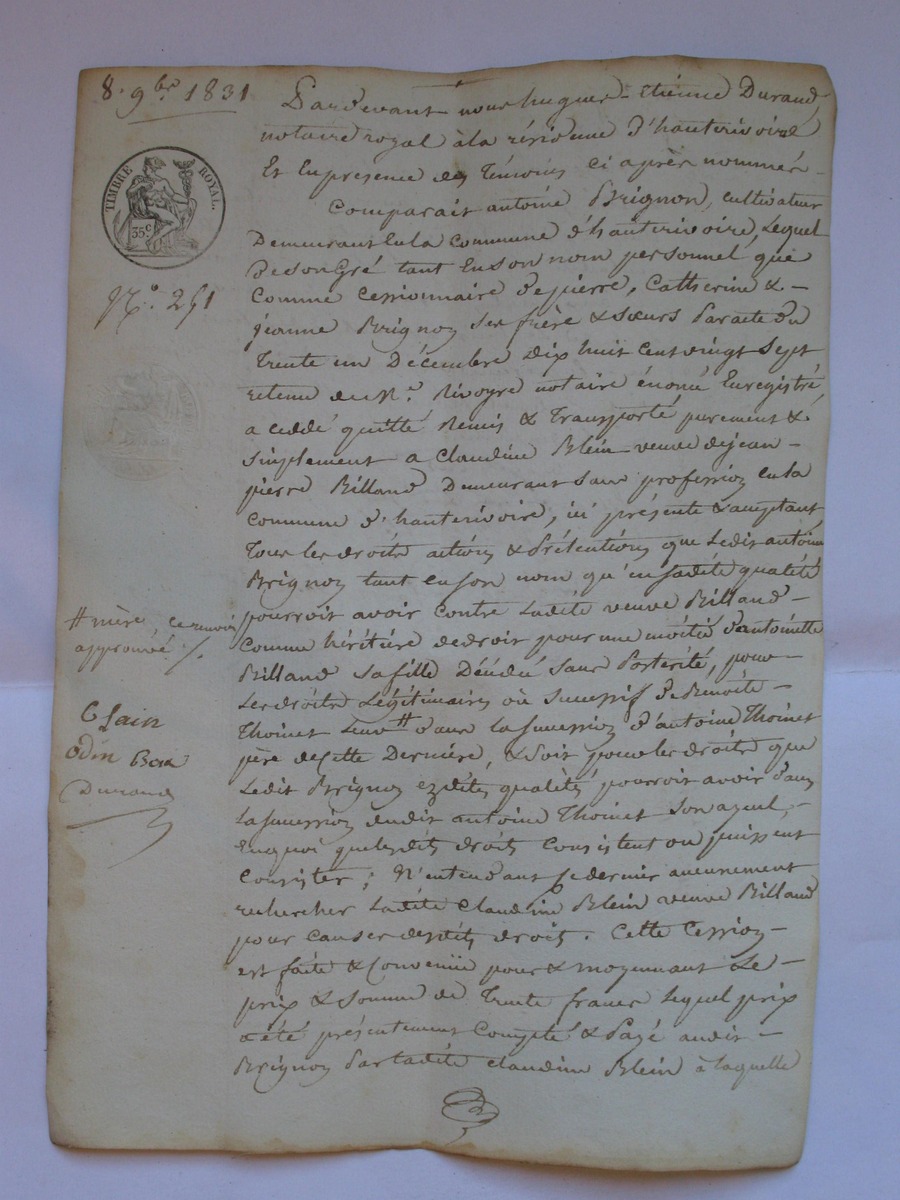 8. 9bre 1831
TIMBRE ROYAL.
35c
N.º 251
Pardevant nous hugues-etienne Durand
notaire royal à la résidence d'hauterivoire
Et En présence des Témoins ci après nommés
Comparait antoine Brignon, cultivateur
Demeurant En la commune d'hauterivoire, Lequel
De son Gré tant En son nom personnel que
Comme Cessionnaire de pierre, Catherine &
jeanne Brignon ses frère & sœurs Par acte du
Trente un Décembre Dix huit cent vingt Sept
retenu de Me. Rivoyre notaire énoncé Enregistré
a cédé quitté Remis & Transporté purement &
simplement a Claudine Blein veuve de jean-
pierre Billand Demeurant sans profession En la
commune d'hauterivoire, ici présente & acceptant
Tous les droits actions & Prétentions que Ledit antoine
Brignon tant En son nom qu'en sadite qualité
pourroit avoir contre Ladite veuve Billand
Comme héritière de droit pour une moitié d'antoinette
Billand sa fille Décédé sans Postérité, pour
Les droits Légitimaires où Successif de Benoite
Thoinet Leur # dans La succession d'antoine Thoinet
père de Cette Dernière, & soit pour les droits que
Ledit Brignon ezdites qualités pourroit avoir dans
La succession dudit antoine Thoinet son ayeul,
En quoi que lesdits droits consistent ou puissent
Consister; N'entendant ce dernier aucunement
rechercher Ladite Claudine Blein veuve Billand
pour causes desdits droits. Cette Cession
est faite & Convenüe pour & moyennant Le
prix & Somme de Trente francs Lequel prix
a été présentement Compté & Payé audit
Brignon Par Ladite Claudine Blein à laquelle
# mère, ce renvoi
approuvé
Odin
Durand